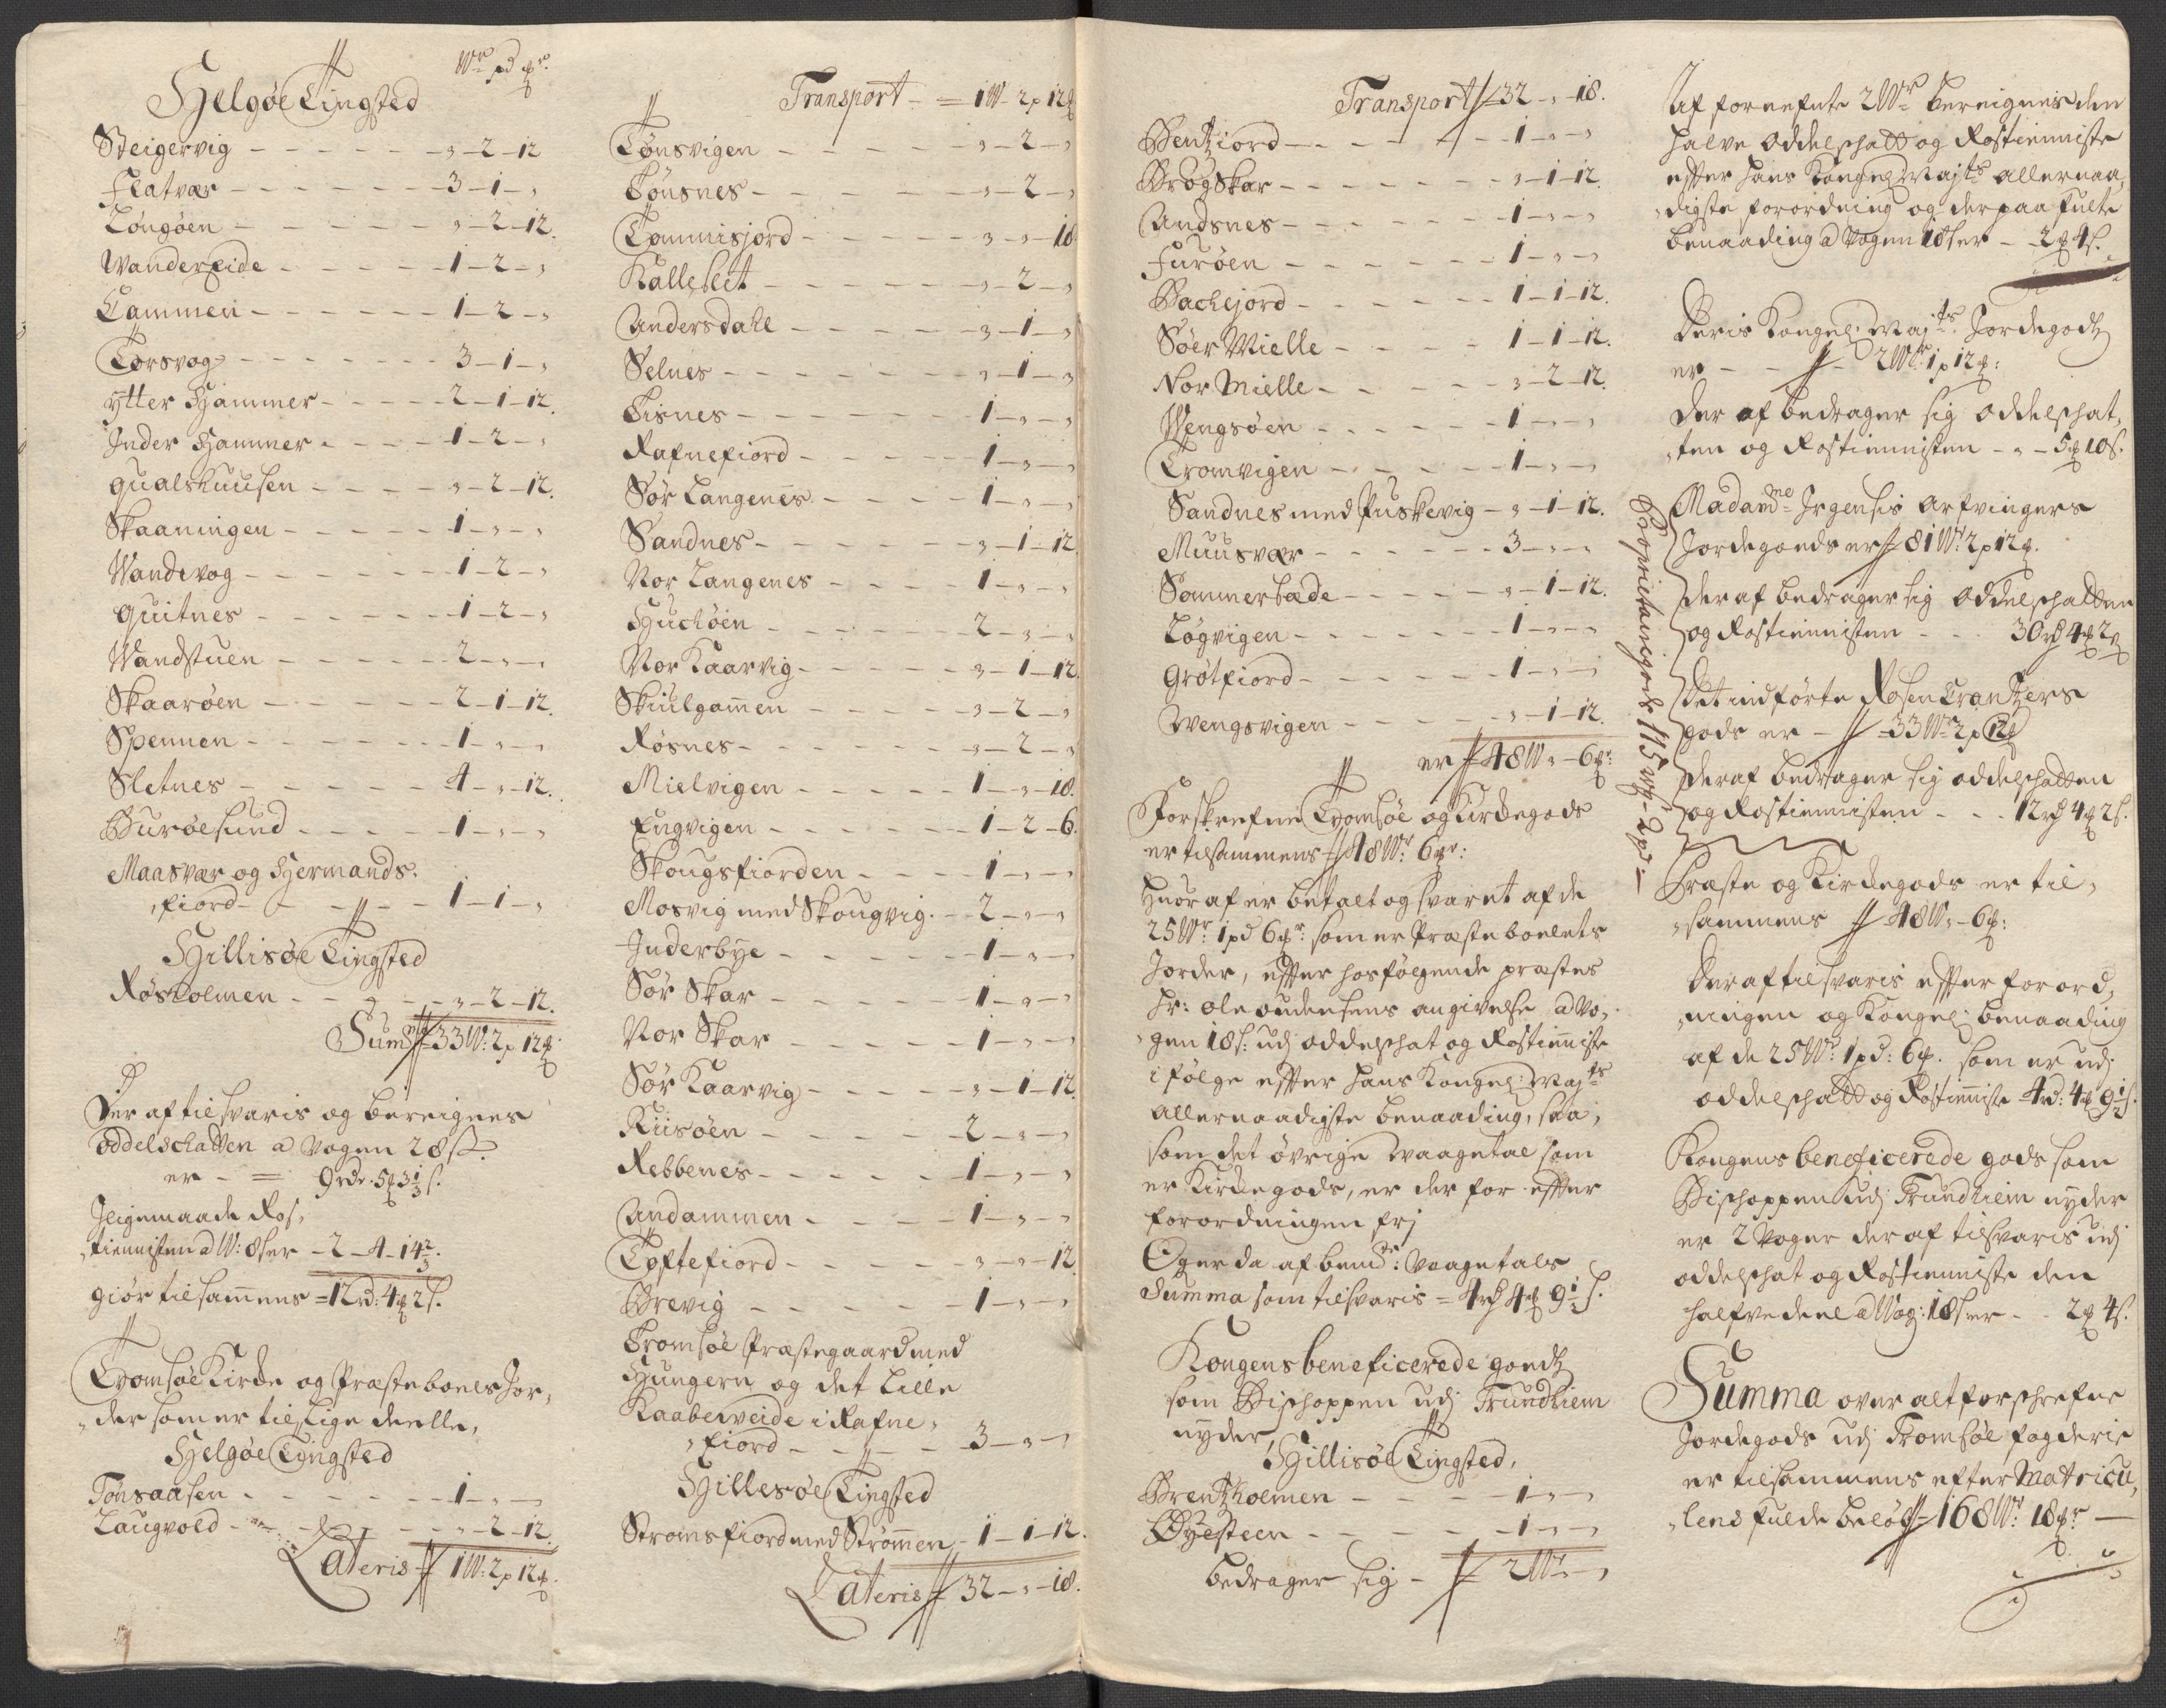 Wr pd ℔r
Helgøe Tingsted
Steigervig - - - - - , - 2 - 12
Flatvær - - - - - - 3 - 1 - ,
Longøen - - - - - , - 2 - 12.
Wandereide - - - - 1 - 2 - ,
Cammen - - - - - - 1 - 2 - ,
Torsvog - - - - - - 3 - 1 - ,
ytter Hammer - - - - 2 - 1 - 12.
Inder Hammer - - - - 1 - 2 - ,
Qualshuusen - - - - , - 2 - 12.
Skaaningen - - - - 1 - , - ,
Wandvog - - - - - 1 - 2 - ,
Quitnes - - - - - 1 - 2 - ,
Wandstuen - - - - 2 - , - ,
Skaarøen - - - - - 2 - 1 - 12.
Spennen - - - - - 1 - , - ,
Sletnes - - - - - 4 - , - 12.
Burøesund - - - - 1 - , - ,
Maasvær og Hermands-
fiord - - - - - 1 - 1 - ,
Hillisøe Tingsted
Røsholmen - - - - , - 2 - 12.
Summa 33 W: 2 p 12 ℔.
Der af tilsvaris og bereignes
oddelschatten a Vogen 28 s.
er - = 9 rdr. 5 ℔ 3 1/3 s.
Iligemaade Ros,
tienisten a W: 8 s er - 2 - 4 - 14 2/3.
giør tilsammens = 12 rd: 4 ℔ 2 s.
Tromsøe Kirke og Præsteboels Jor,
der som er tilliige deelle,
Helgøe Tingsted
Tonsaasen - - - - - 1 - , - ,
Laugvold - - - - , - 2 - 12.
Lateris 1 W: 2 p 12 ℔.
Transport - = 1 W - 2 p 12 ℔
Tønsvigen - - - - - , - 2 - ,
Tønsnes - - - - - , - 2 - ,
Tommisjord - - - - , - , - 18
Kalleslet - - - - - , - 2 - ,
Andersdahl - - - - - , - 1 - ,
Selnes - - - - - - , - 1 - ,
Tisnes - - - - - - 1 - , - ,
Rafnefiord - - - - - 1 - , - ,
Sør Langenes - - - - 1 - , - ,
Sandnes - - - - - , - 1 - 12.
Nor Langenes - - - - 1 - , - ,
Huchøen - - - - - 2 - , - ,
Nor Kaarvig - - - - , - 1 - 12.
Skiulgamen - - - - , - 2 - ,
Røsnes - - - - - - , - 2 - ,
Mielvigen - - - - - 1 - , - 18.
Engvigen - - - - - 1 - 2 - 6.
Skougsfiorden - - - - 1 - , - ,
Mosvig med Skougvig. - 2 - , - ,
Inderbye - - - - - 1 - , - ,
Sør Skar - - - - - 1 - , - ,
Nor Skar - - - - - 1 - , - ,
Sør Kaarvig - - - - , - 1 - 12
Riisøen - - - - - 2 - , - ,
Rebbenes - - - - - 1 - , - ,
Andammen - - - - 1 - , - ,
Toftefiord - - - - - , - , - 12
Brevig - - - - - 1 - , - ,
Tromsøe Præstegaard med
Hungern og det Lille
Kaaberveide i Rafne,
fiord - - - - - 3 - , - ,
Hillesøe Tingsted
Strømsfiord med Strømmen - 1 - 1 - 12.
Lateris 32 - , - 18.
Transport 32 - , - 18.
Bentziord - - - - - 1 - , - ,
Brogskar - - - - - , - 1 - 12.
Andsnes - - - - - 1 - , - ,
Furøen - - - - - 1 - , - ,
Bachejord - - - - - 1 - 1 - 12.
Søer Mielle - - - - 1 - 1 - 12.
Nor Mielle - - - - , - 2 - 12.
Wengsøen - - - - - 1 - , - ,
Tromvigen - - - - 1 - , - ,
Sandnes med Puskevig - , - 1 - 12.
Muusvær - - - - - 3 - , - ,
Sommerbæde - - - - , - 1 - 12.
Løgvigen - - - - - 1 - , - ,
Grøtfiord - - - - - 1 - , - ,
Wengsvigen - - - - , - 1 - 12.
er 48 W , - 6 ℔r:
Forskrefne Tromsøe og Kirkegods
er tilsammens 48 Wr: 6 ℔r:
Huor af er betalt og svaret af de
25 Wr 1 pd 6 ℔r: som er Præsteboelets
Jorder, efter hosfølgende præstes
Hr: Ole oudensens angivelse a Vo,
gen 18 s: udj oddelschat og Rostieniste
i følge efter Hans Kongel: Majts
allernaadigste benaading, saa,
som det øvrige Waagetal som
er Kirkegods, er der for efter
forordningen frj
Og er da af bemte: Waagetals
Summa som tilsvaris = 4 rd 4 ℔ 9 1/2 s.
Kongens beneficerede goedtz
som Bischoppen udj Trundhiem
nyder,
Hillisøe Tingsted,
Brentholmen - - - 1 - , - ,
Øyesteen - - - - - 1 - , - ,
bedrager sig - 2 Wr - ,
Af fornefnte 2 Wr bereignis den
halve oddelschatt og Rostienniste
efter Hans Kongel: Majts allernaa,
digste forordning og derpaa fulte
benaading a Vogen 18 s er - 2 ℔ 4 s.
Deris Kongel: Majts Jordegodtz
er - - 2 Wr: 1 p 12 ℔:
Der af bedrager sig oddelschat,
ten og Rostiennisten - , - 5 ℔ 10 s.
Madame Irgensis Arfvingers
Jordegoeds er 81 Wr: 2 p 12 ℔.
Der af bedrager sig oddelschatten
og Rostiennisten - - 30 rd 4 ℔ 2 s
Det indførte Rosencrantzers
gods er - 33 Wr 2 p 12 ℔
Der af bedrager sig oddelschatten
og Rostiennisten - - - 12 rd 4 ℔ 2 s.
Proprietairegods 115 Wg - 2 pd -
Præste og Kirkegods er til,
sammens 48 W , - 6 ℔:
Der af tilsvaris efter forord,
ningen og Kongel: benaading
af de 25 Wr: 1 pd: 6 ℔. som er udj
oddelschatt og Rostieniste 4 rd: 4 ℔ 9 1/2 s.
Kongens beneficerede gods som
Bischoppen udj Trundhiem nyder
er 2 Voger der af tilsvaris udj
oddelschat og Rostienniste den
halfve deel a Wog: 18 s er - - 2 ℔ 4 s.
Summa over alt forschrefne
Jordegods udj Tromsøe fogderie
er tilsammens efter Matricu,
lens fulde beløb 168 Wr 18 ℔r -